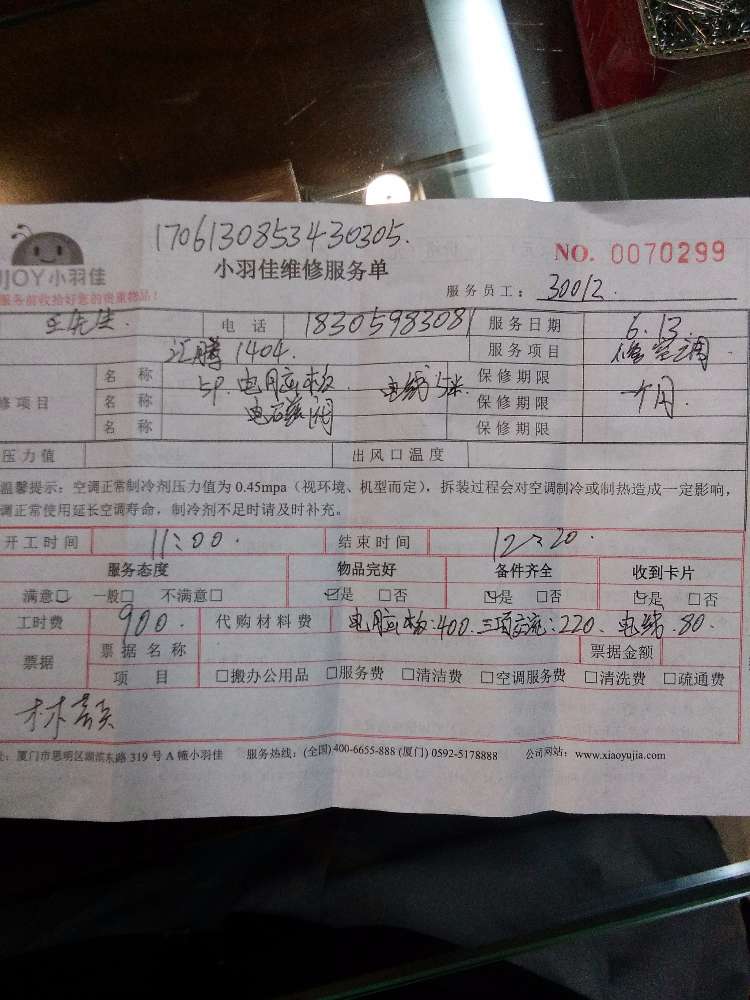 1706130853430305.
NO. 0070299
JOY小羽佳
小羽佳维修服务单
服务前收拾好您的贵重物品!
服务员工: 30012.
王先生. 电话 18305983081 服务日期 6.13
汇腾1404. 服务项目 修空调
修项目 名称 5P. 电脑主板. 电线5米 保修期限
名称 保修期限 一个月.
名称 保修期限
压力值 出风口温度
温馨提示:空调正常制冷剂压力值为0.45mpa(视环境、机型而定),拆装过程会对空调制冷或制热造成一定影响,
调正常使用延长空调寿命,制冷剂不足时请及时补充。
开工时间 11:00. 结束时间 12:20.
服务态度 物品完好 备件齐全 收到卡片
满意□ 一般□ 不满意□ ☑是 □否 ☑是 □否 ☑是 □否
工时费 900. 代购材料费 电脑主板:400. 三项交流:220、电线.80.
票据 票据名称 票据金额
项目 □搬办公用品 □服务费 □清洁费 □空调服务费 □清洗费 □疏通费
址:厦门市思明区湖滨东路319号A幢小羽佳 服务热线:(全国)400-6655-888 (厦门) 0592-5178888 公司网站:www.xiaoyujia.com